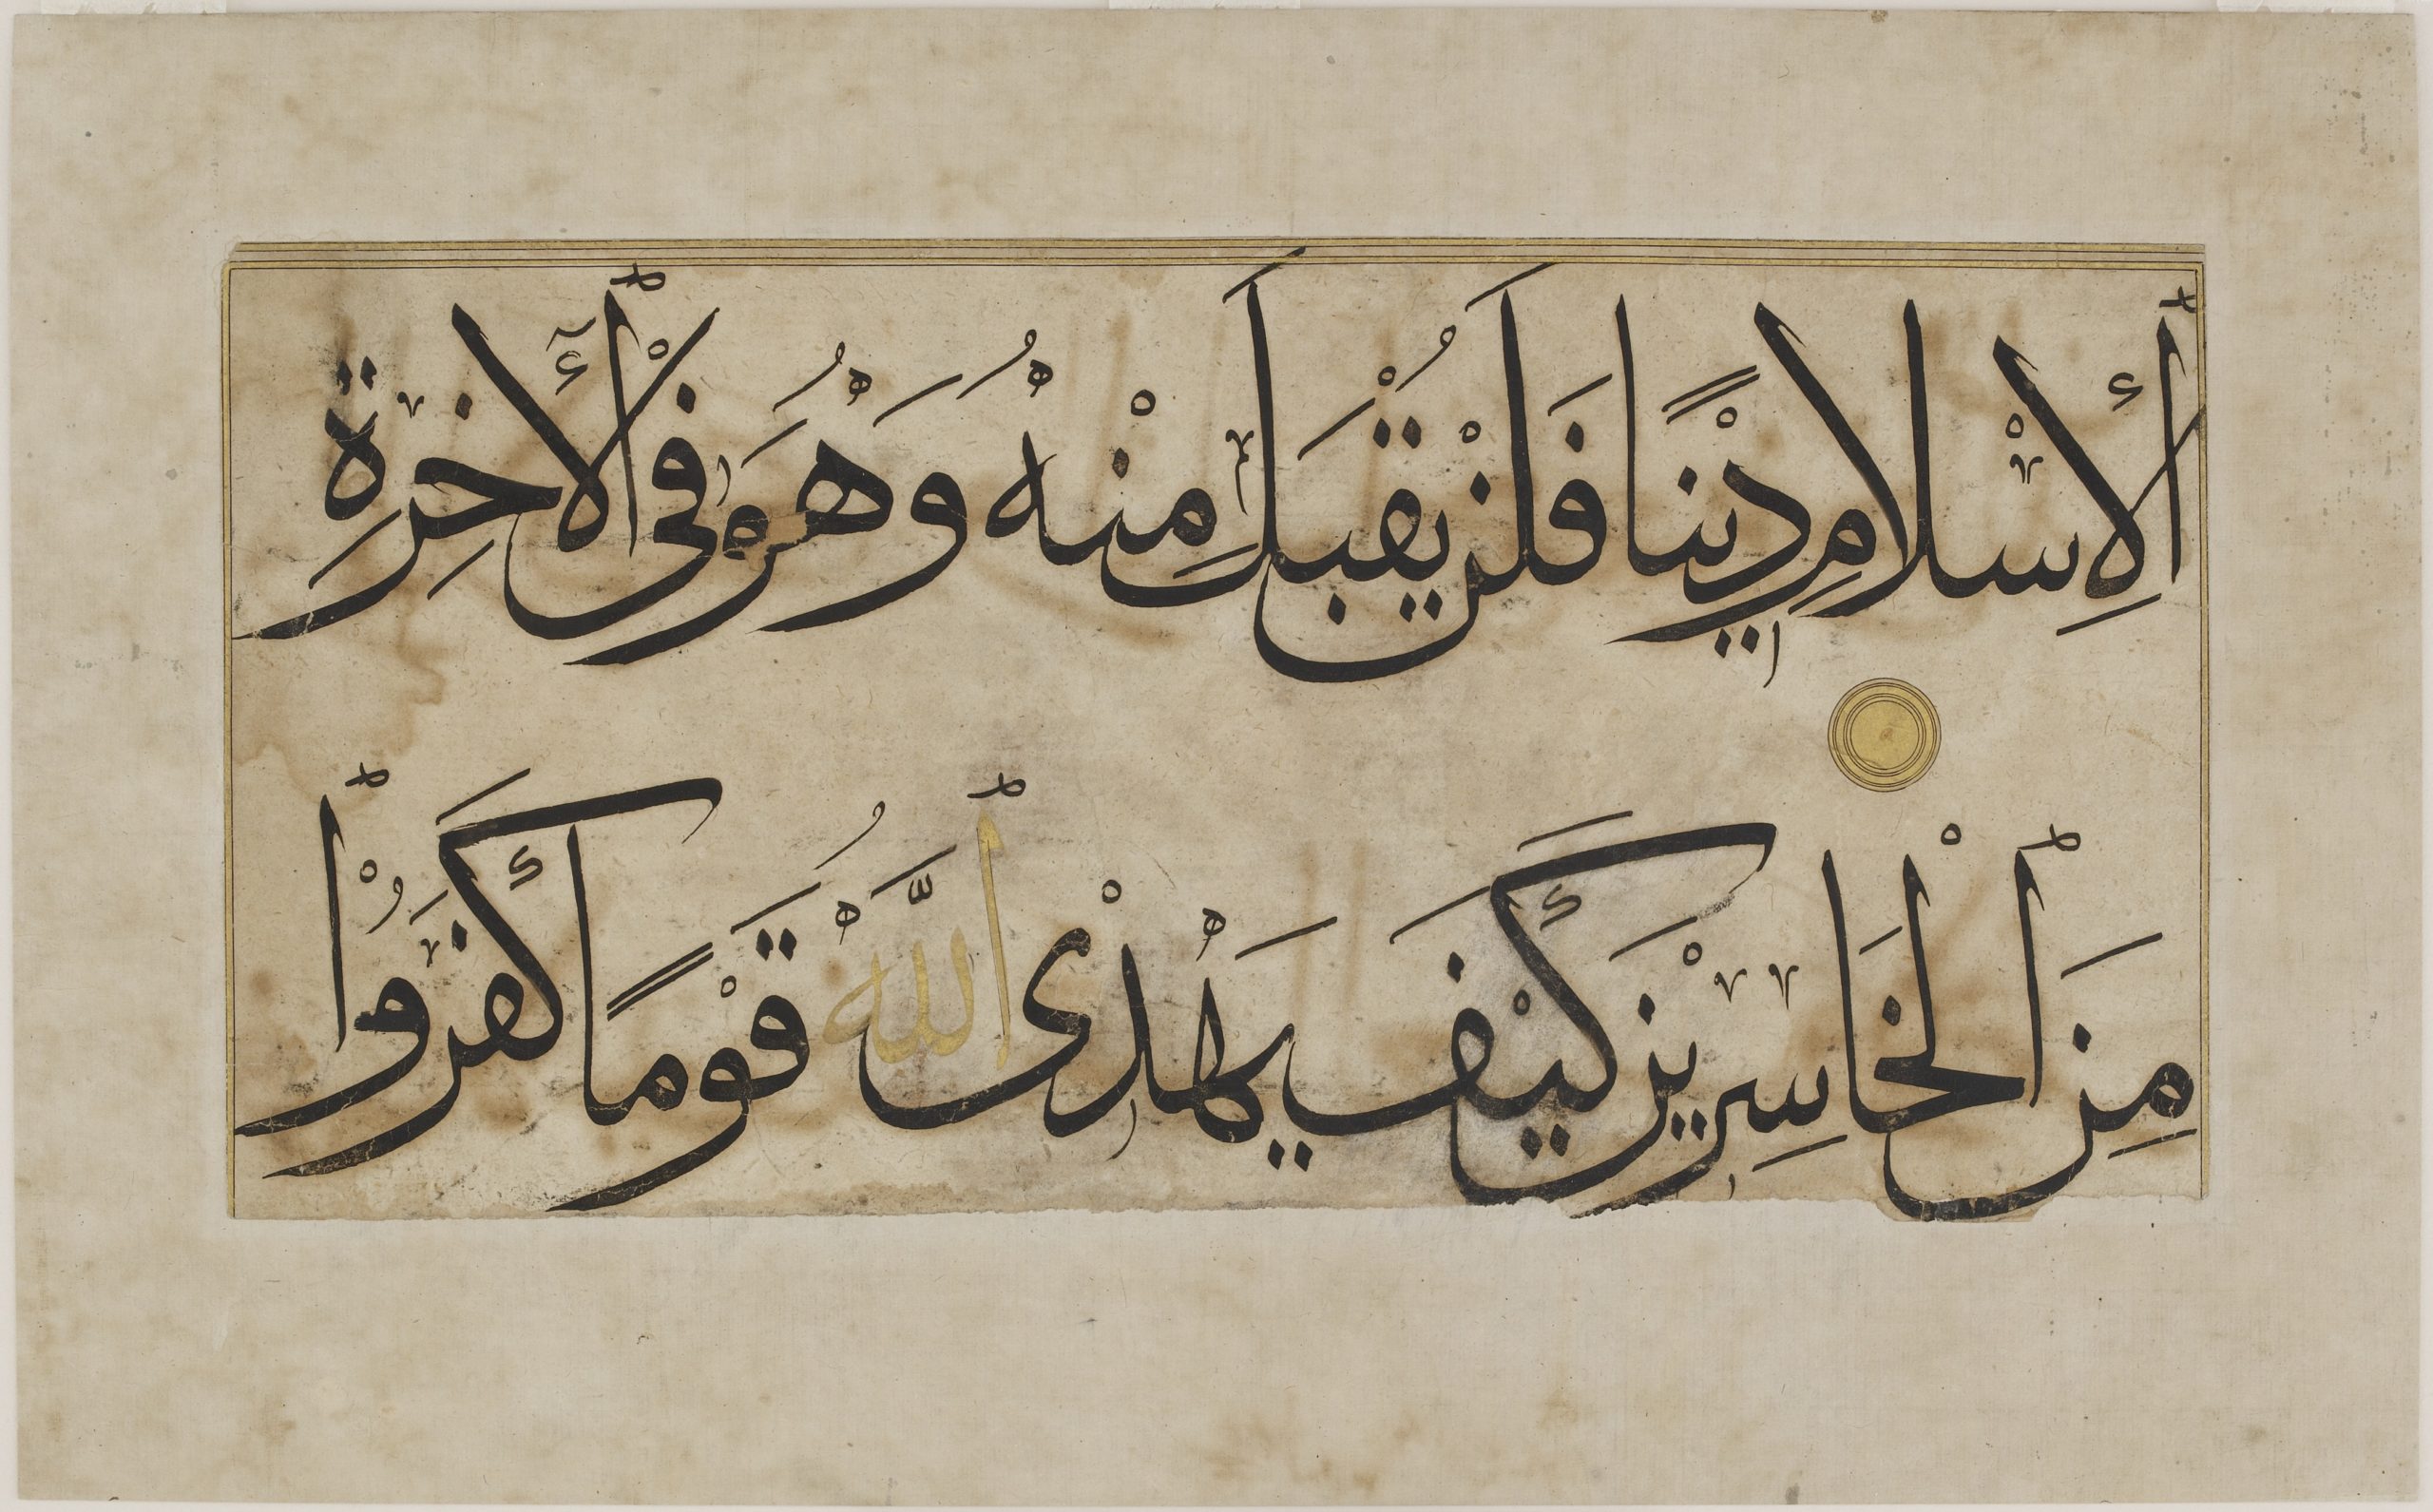 ٱلْأِسْلَامِ دِيْنًا فَلَنْ يُقْبَلَ مِنْهُ وَهُوَ فِىْ ٱلْأٓخِرَةِ
مِنَ ٱلْخَاسِرِيْنَ كَيْفَ يَهْدِىْ ٱللَّهُ قَوْمًا كَفَرُوْا